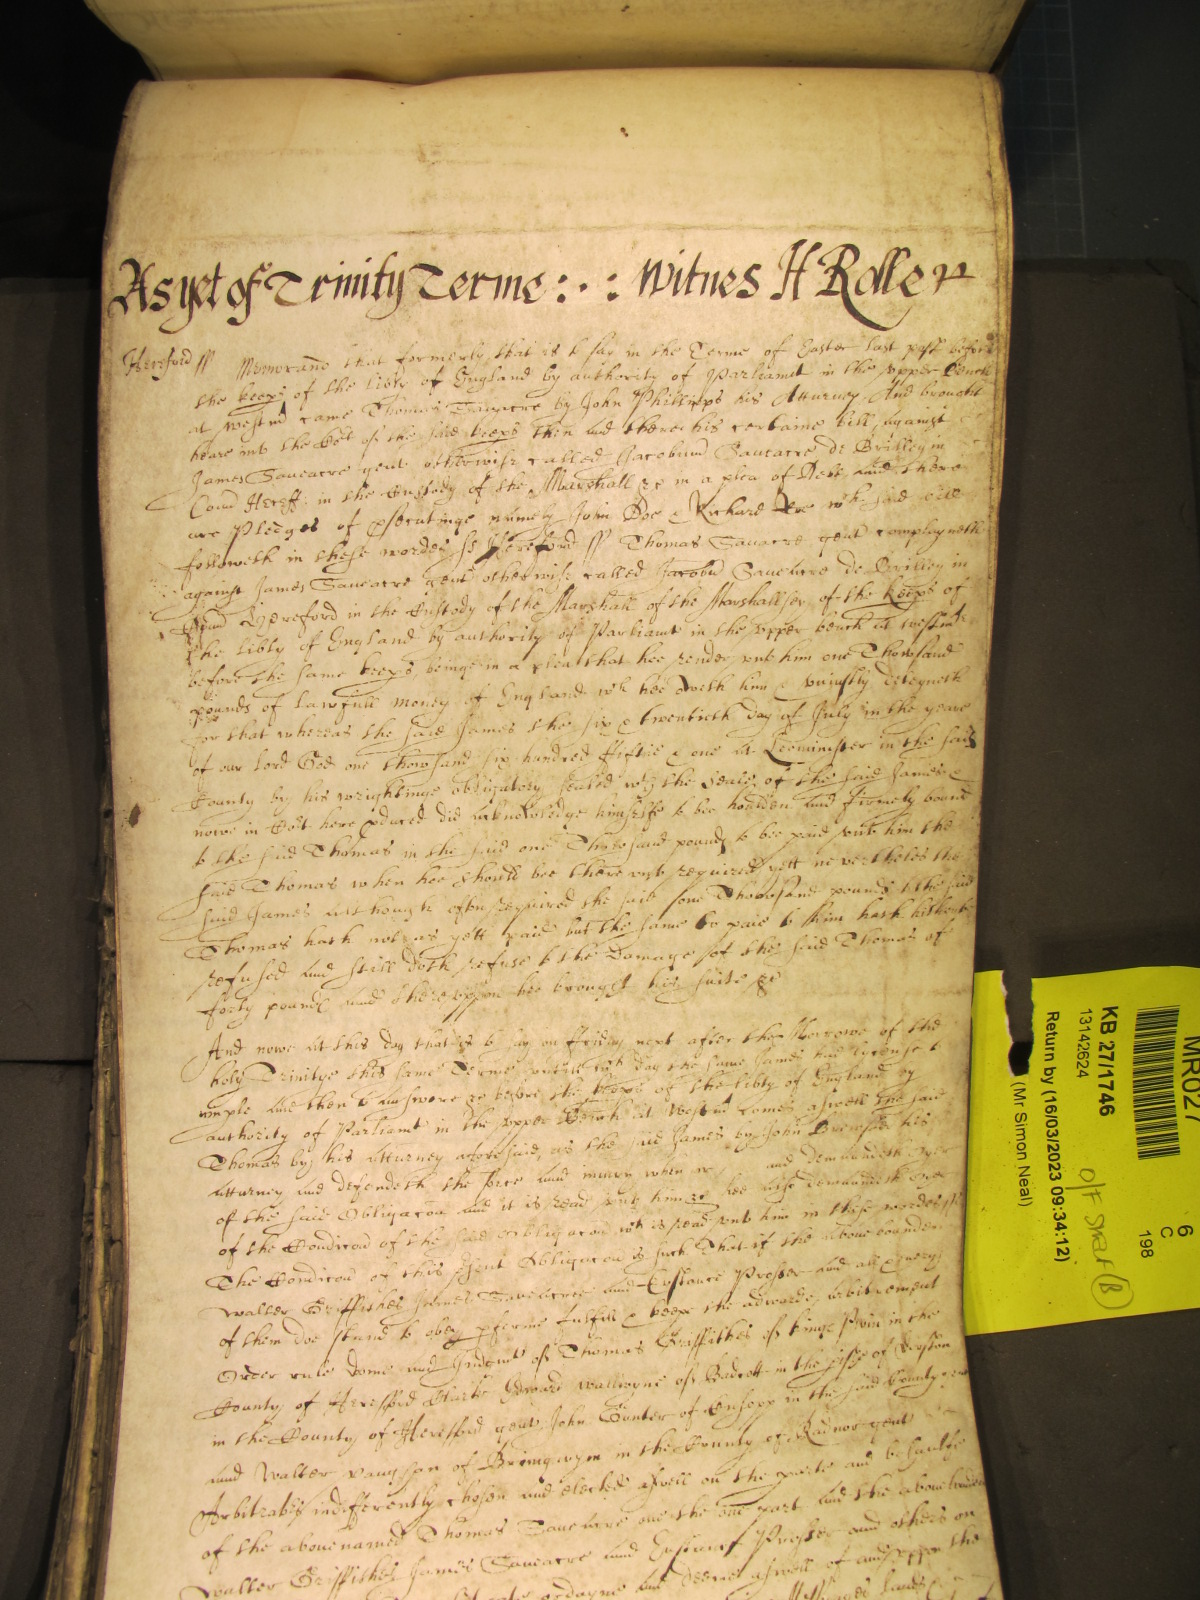 As yet of Trinity Terme : · : Witnes H Rolle
Hereford ss Memorand that formerly that is to say in the Terme of Easter last past before
the keeps of the libty of England by authority of Parliamt in the upper bench
at Westm came Thomas Saueacre by John Phillipps his Atturney And brought
heare into the Cot of the said keeps then and there his certaine bill against
James Saueacre gent otherwise called Jacobum Saueacre de Brilley in
Com Hereff in the Custody of the Marshall &c in a plea of Debt and there
are Pledges of psecutinge namely John Doe & Richard Roe wch said bill
followeth in these wordes ss Hereford ss Thomas Saueacre gent complayneth
against James Saueacre gent otherwise called Jacobu Saueacre de Brilley in
Com Hereford in the Custody of the Marshall of the Marshallsey of the keeps of
the libty of England by authority of Parliamt in the upper bench at Westmr
before the same keeps beinge in a plea that hee render unto him one Thowsand
pounds of lawfull money of England wch hee oweth him & uniustly deteyneth
for that whereas the said James the six & twentieth day of July in the yeare
of our lord God one thowsand six hundred fiftie & one at Leominster in the said
County by his wrightinge obligatory sealed wth the seale of the said James &
nowe in Cot here pduced did acknowledge himselfe to bee houlden and firmely bound
to the said Thomas in the said one Thowsand pounds to bee paid unto him the
said Thomas when hee should bee thereunto required yett nevertheles the
said James although often required the said one Thowsand pounds to the said
Thomas hath not as yett paid but the same to paie to him hath hitherto
refused and still doth refuse to the damage of the said Thomas of
forty pounds and thereuppon hee brought his suite &c
And nowe at this day that is to say on Friday next after the Morrowe of the
holy Trinitye this same Terme untill wch day the same James had lycense to
imple and then to answere &c before the keeps of the libty of England by
authority of Parliamt in the upper Bench at Westm comes aswell the said
Thomas by his Atturney aforesaid as the said James by John his
Atturney and defendeth the force and iniury when &c and demandeth oyer
of the said Obligacon and it is read unto him &c hee alsoe demandeth oyer
of the Condicon of the said Obligacon wch is read unto him in these wordes ss
The Condicon of this psent Obligacon is such That if the aboue bounden
Walter Griffithes James Saueacre and Eustance Prosser and all & euery
of them doe stand to obey pforme fulfill & keepe the adwarde arbitrement
Order rule dome and Judgmt of Thomas Griffithes of kings in the
County of Hereford Clarke Edward Wallwyne of in the pishe of
in the County of Hereford gent John Gunter of in the said County gent
and Walter Vaughan of in the County of Radnor gent
Arbitrators indifferently chosen and elected aswell on the parte and behaulfe
of the abouenamed Thomas Saueacre one the one part and the aboue bounden
Walter Griffithes James Saueacre and Eustance Prosser and others on
ordayne and decree aswell of and uppon the
MR027
KB 27/1746
13142624
Return by (16/03/2023 09:34:12)
(Mr Simon Neal)
O/F Shelf B
6
C
198